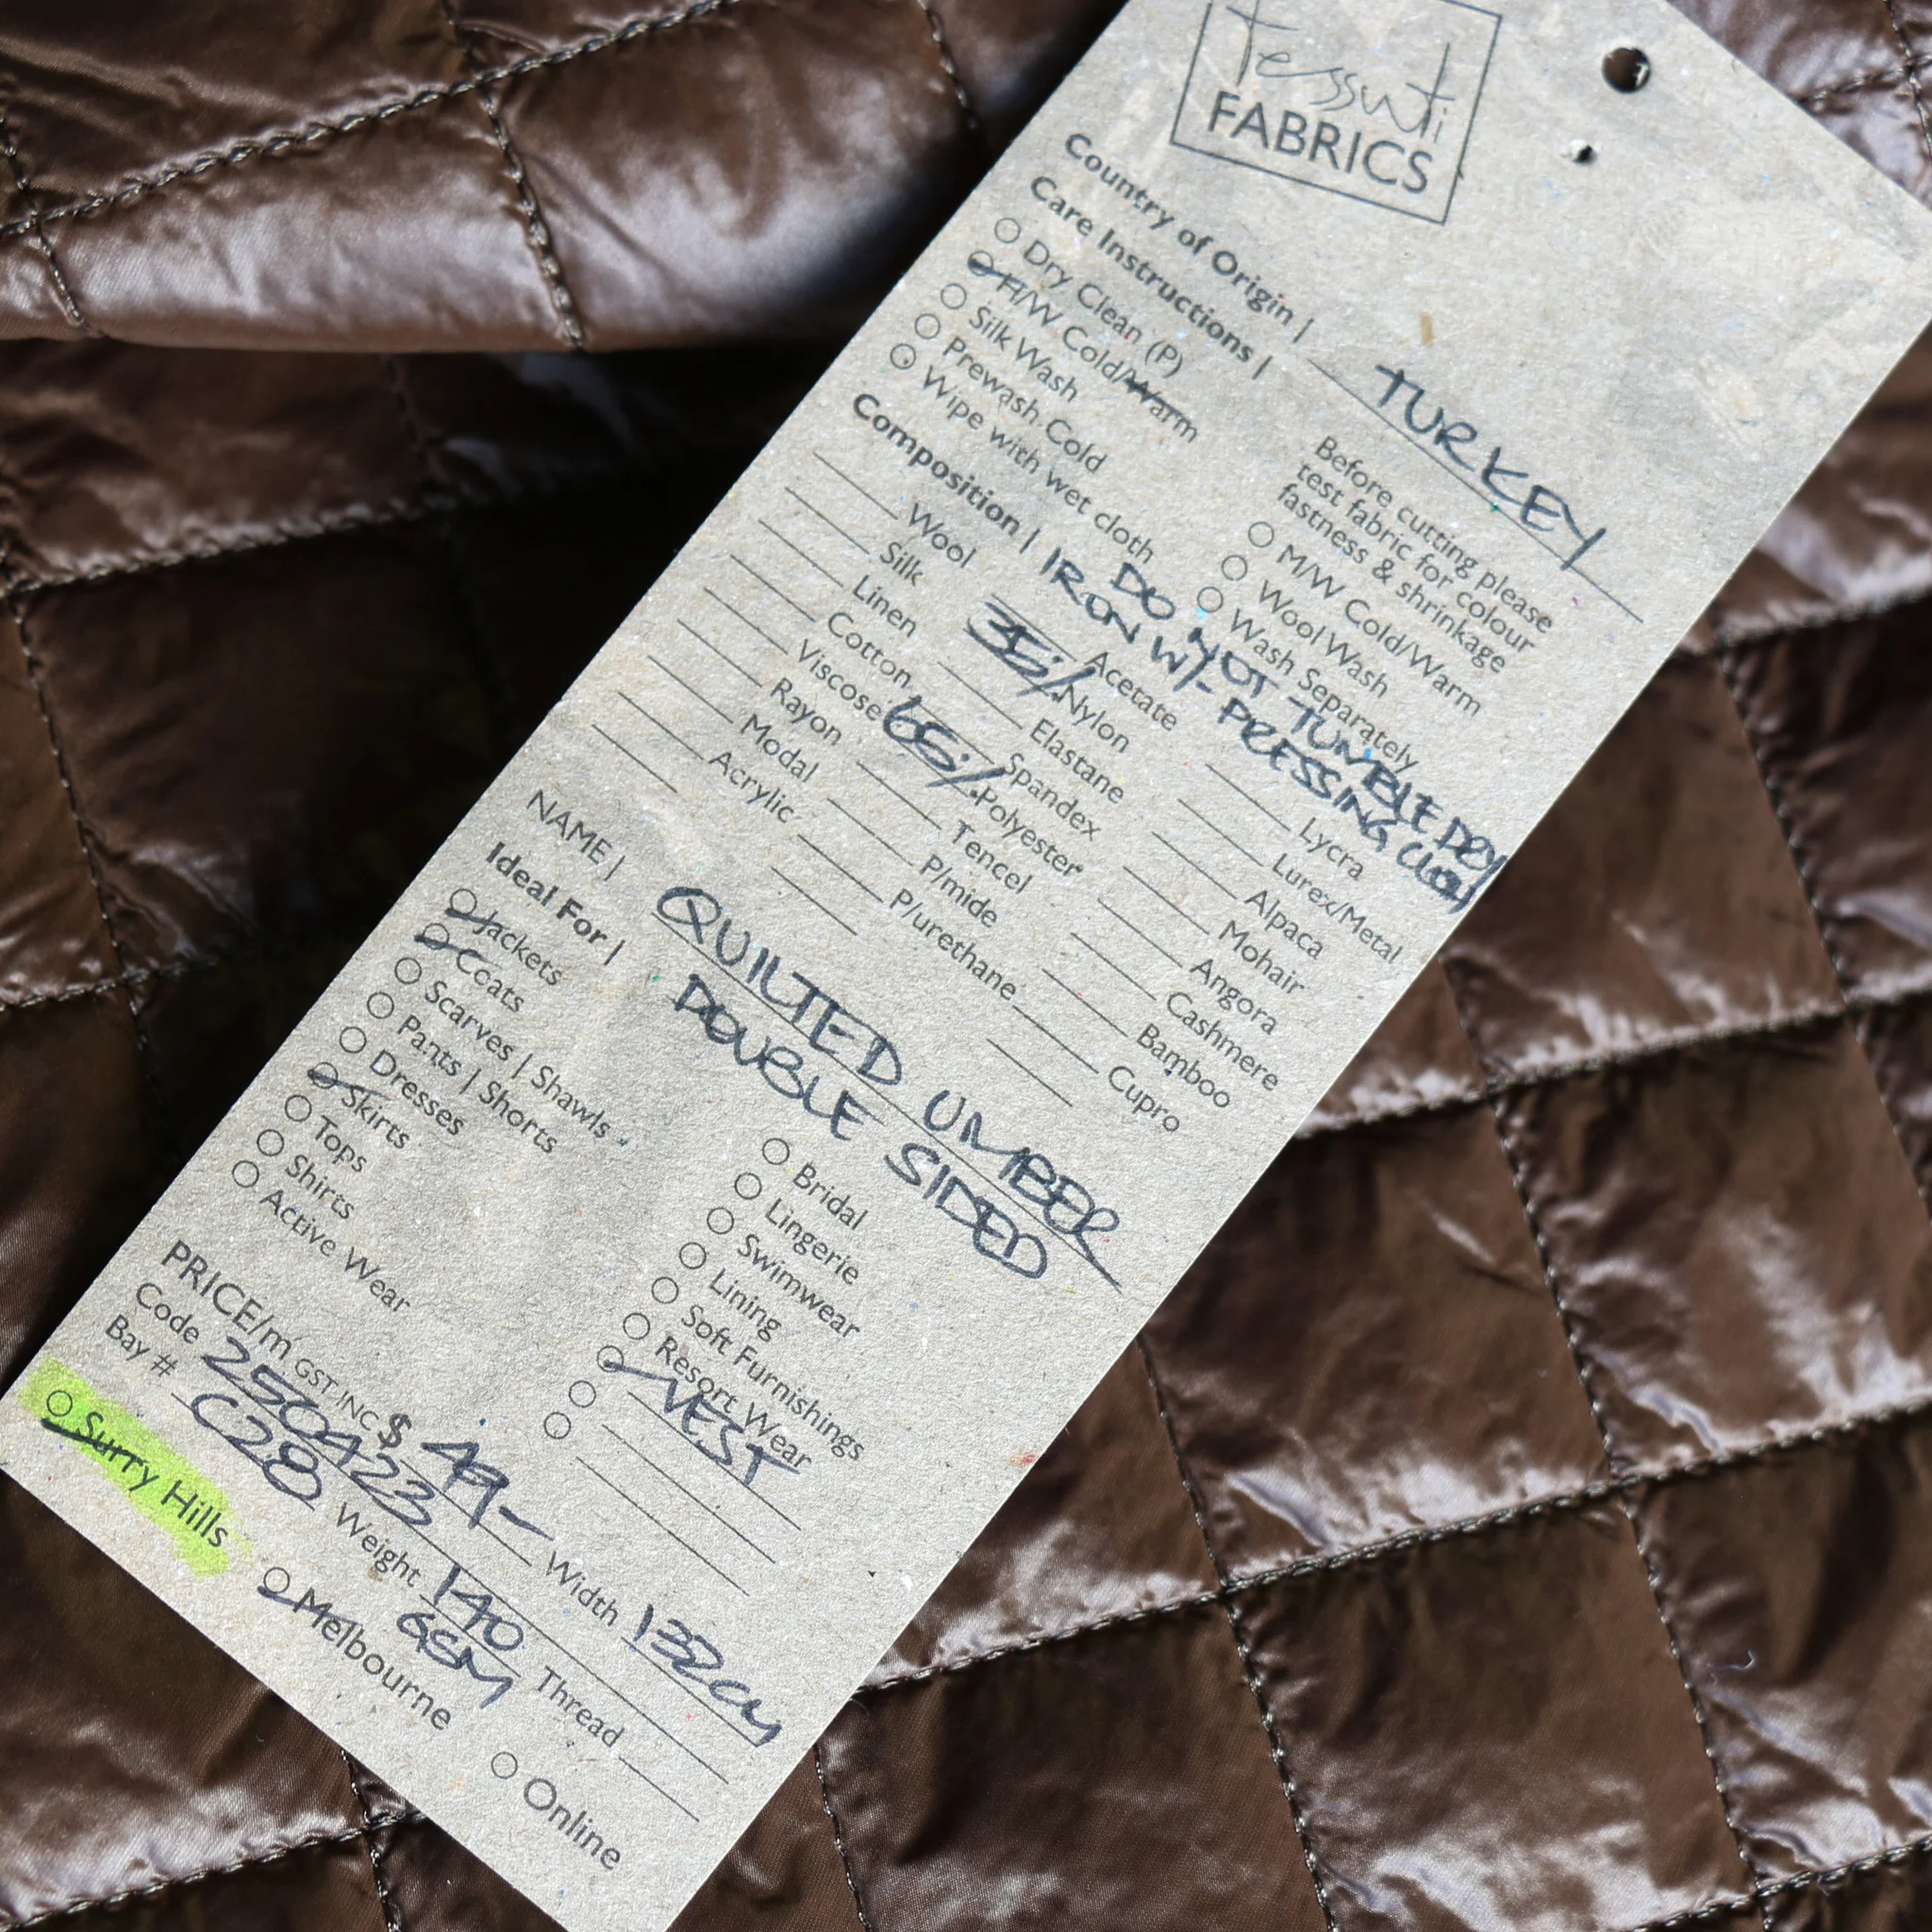 tessuti
FABRICS
Country of Origin | TURKEY
Care Instructions |
Before cutting please
test fabric for colour
fastness & shrinkage
Dry Clean (P)
H/W Cold/Warm
Silk Wash
Prewash Cold
Wipe with wet cloth
M/W Cold/Warm
Wool Wash
Wash Separately
DO NOT TUMBLE DRY
Composition | IRON W/- PRESSING CLOTH
Wool
Silk
Linen
Cotton
Viscose
Rayon
Modal
Acrylic
Acetate
35% Nylon
Elastane
Spandex
65% Polyester
Tencel
P/mide
P/urethane
Lycra
Lurex/Metal
Alpaca
Mohair
Angora
Cashmere
Bamboo
Cupro
NAME | QUILTED UMBER
DOUBLE SIDED
Ideal For |
Jackets
Coats
Scarves | Shawls
Pants | Shorts
Dresses
Skirts
Tops
Shirts
Active Wear
Bridal
Lingerie
Swimwear
Lining
Soft Furnishings
Resort Wear
VEST
PRICE/m GST INC $ 49-
Code 250423 Width 132cm
Bay # C28 Weight 140 GSM Thread
Surry Hills Melbourne Online